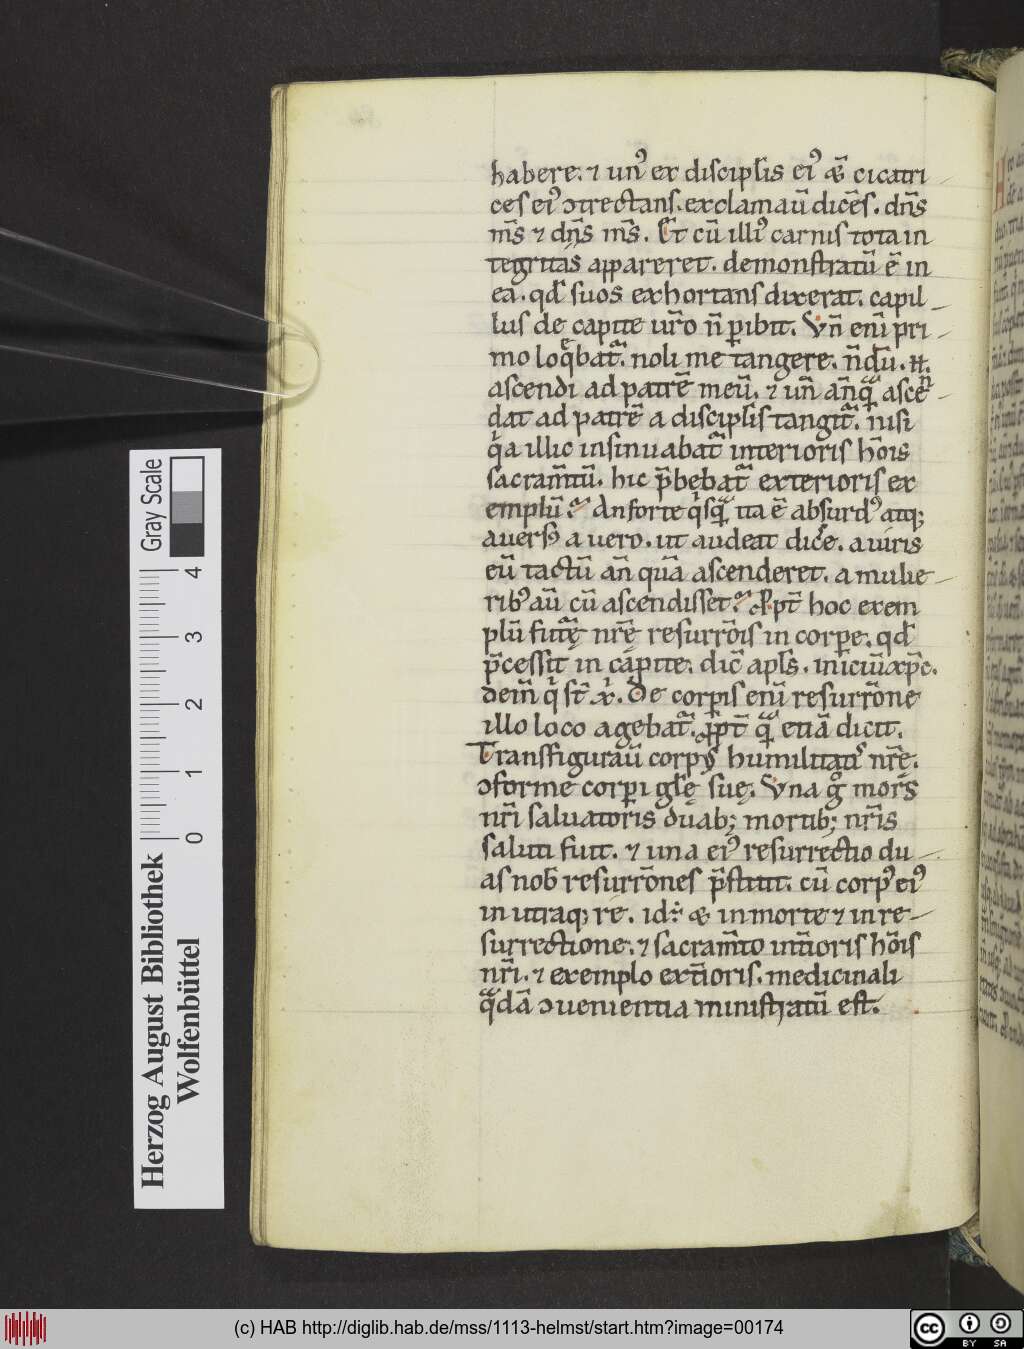 habere. ⁊ un᷒ ex discipl̄is ei᷒ & cicatri
ces ei᷒ ꝯtrectans. exclamaū dicēs. dn̄s
m̄s ⁊ dn̄s m̄s. Et cū illi᷒ carnis tota in
tegritas appareret. demonstratū ē in
ea. qđ suos exhortans dixerat. capil
lus de capite ur̄o n̄ ꝑibit. Vn̄ enī pri
mo loq̄bat᷑. noli me tangere. n̄dū. n̄.
ascendi ad patrē meū. ⁊ un̄ an̄qᷓ ascen
dat ad patrē a discipl̄is tangit᷑. nisi
qͥa illic insinuabat᷑ interioris hōis
sacram̄tū. hic p̄bebat᷑ exterioris ex
emplū? An forte qͥsqᷓ ita ē absurd᷒ atq;
auers᷒ a uero. ut audeat dic̄e. a uiris
eū tactū an̄ quā ascenderet. a mulie
rib᷒ aū cū ascendisset? Ꝓpt̄ hoc exem
plū fut᷑ę nr̄ę resurrōis in corpe. qđ
p̄cessit in capite. dic̄ apl̄s. iniciū xp̄c.
dein̄ qͥ st̄ xͥ. De corꝑis enī resurrōne
illo loco agebat᷑. ꝓpt̄ qᷓ etiā dicit.
Transfigurauit corp᷒ humilitatis nr̄ę.
ꝯforme corꝑi gl̄ę suę. Vna gͦ mors
nr̄i saluatoris duab; mortib; nr̄is
saluti fuit. ⁊ una ei᷒ resurrectio du
as nob̄ resurrōnes p̄stitit. cū corp᷒ ei᷒
in utraq; re. id ē & in morte ⁊ in re
surrectione. ⁊ sacram̄to int̄ioris hōis
nr̄i. ⁊ exemplo ext̄ioris. medicinali
qᷓdā ꝯuenientia ministratū est.
Herzog August Bibliothek
Wolfenbüttel
Gray Scale
0 1 2 3 4
(c) HAB http://diglib.hab.de/mss/1113-helmst/start.htm?image=00174
cc BY SA